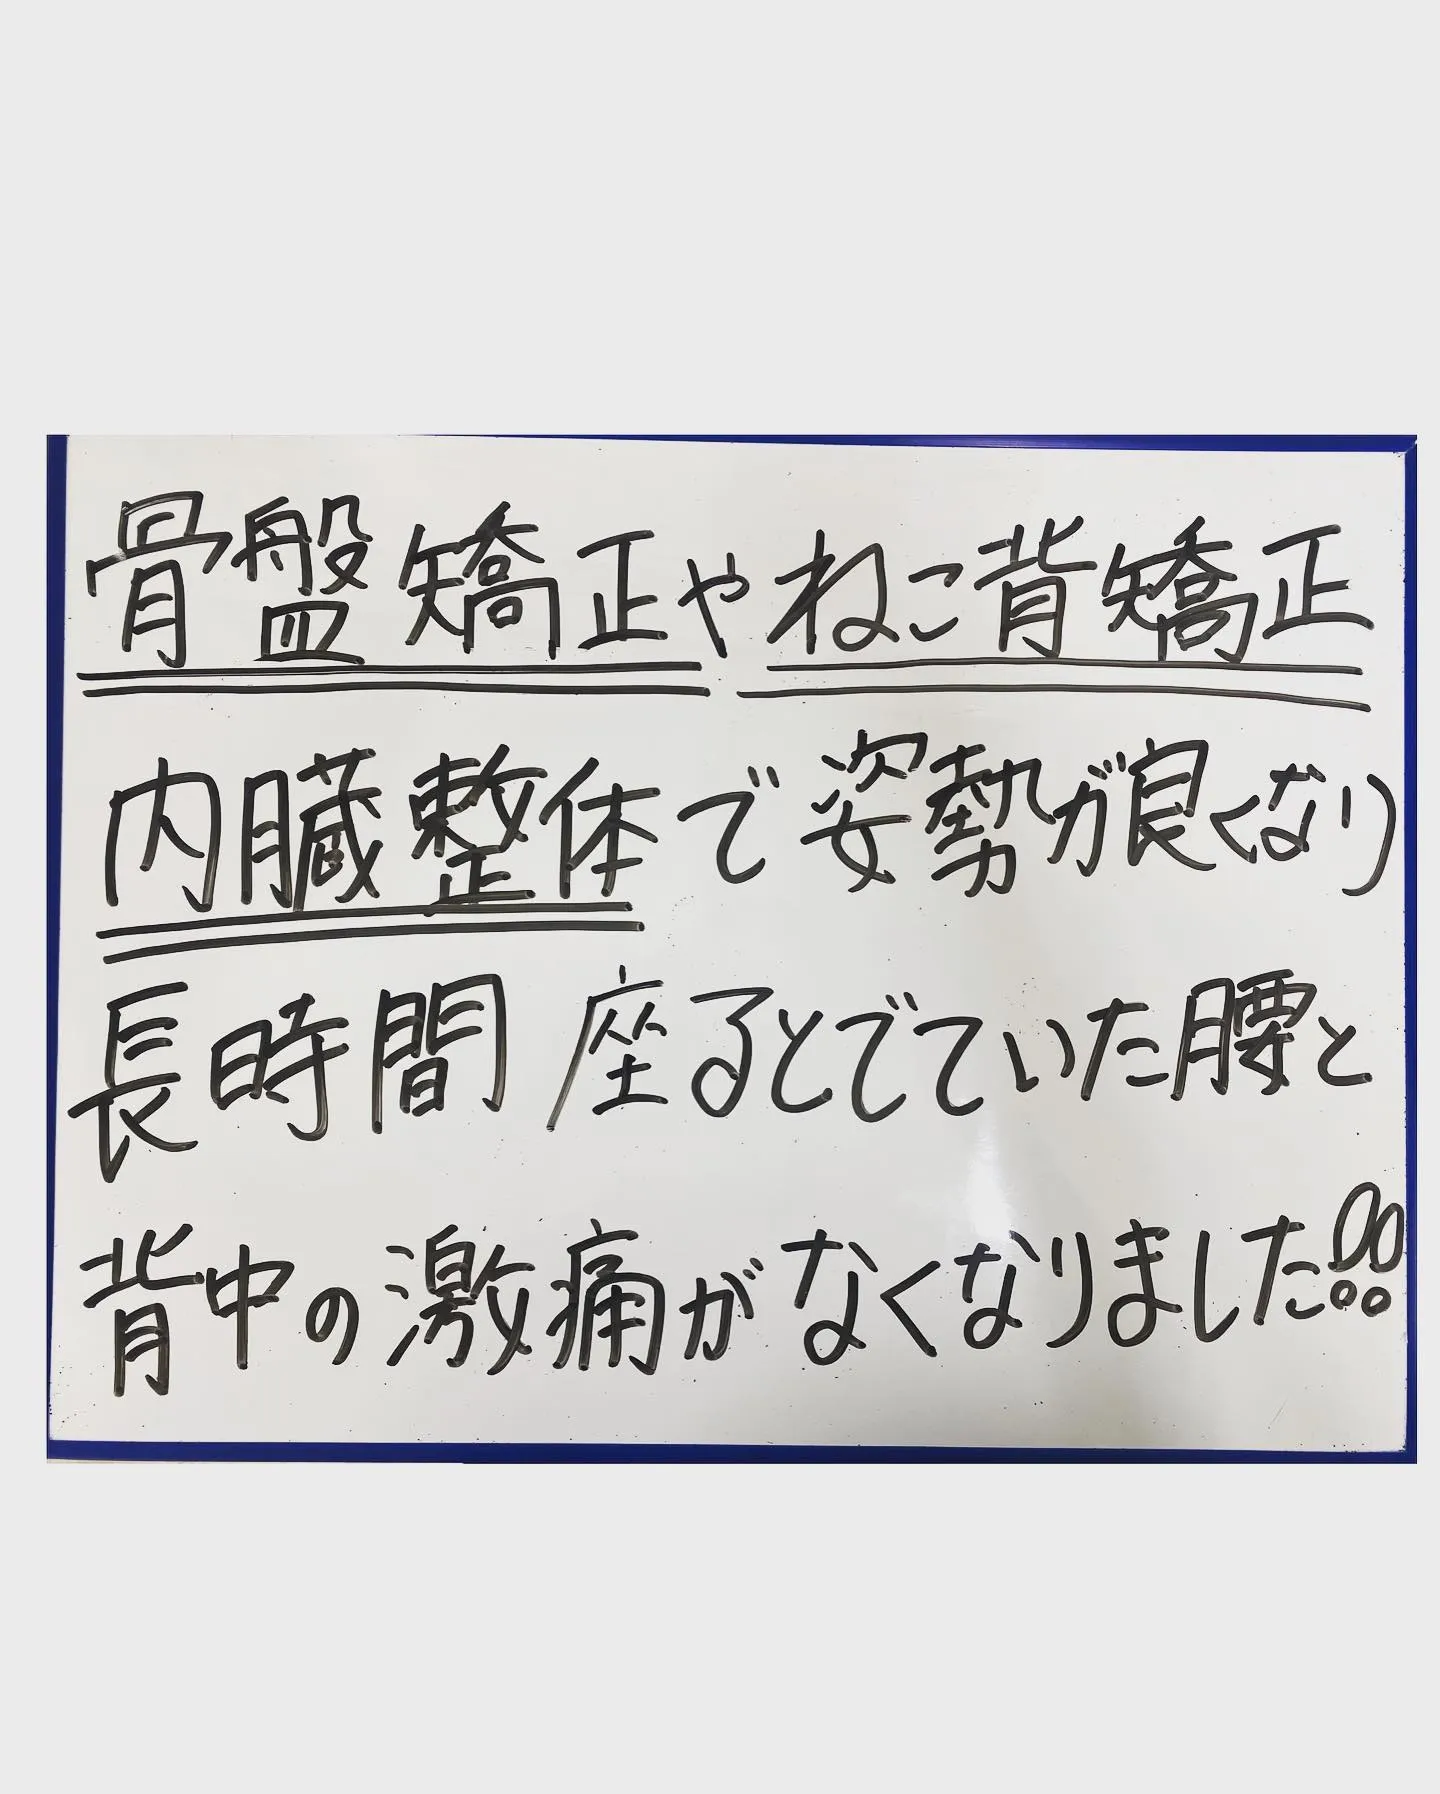 骨盤矯正やねこ背矯正
内臓整体で姿勢が良くなり
長時間座るとでていた腰と
背中の激痛がなくなりました!!